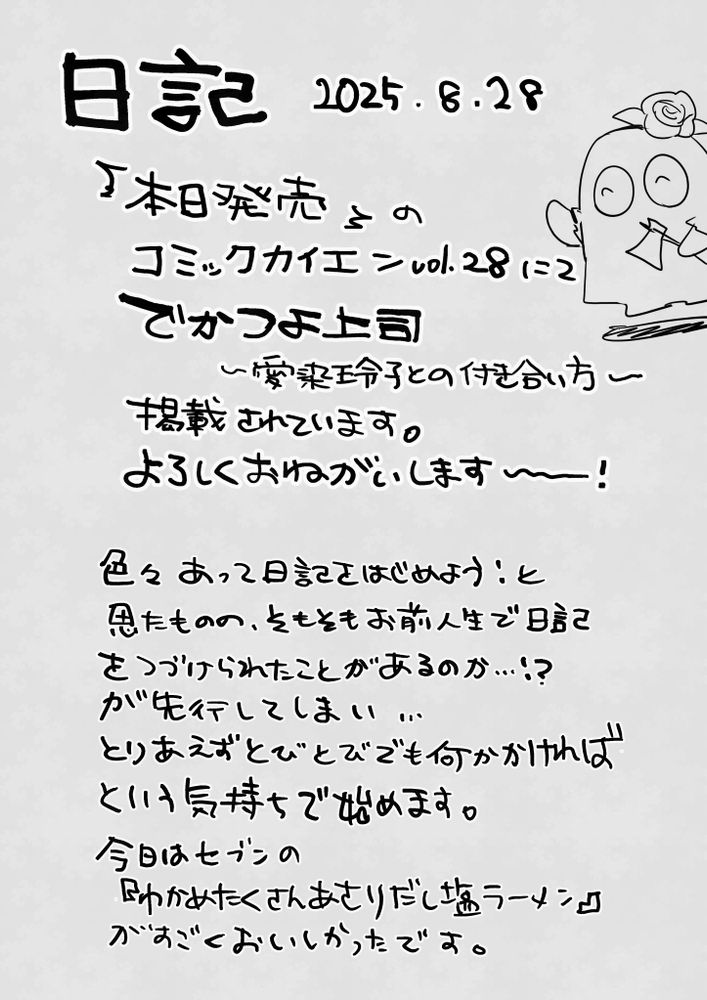 日記 2025.8.28
『本日発売』の
コミックカイエンvol.28にて
でかつよ上司
〜愛染玲子との付き合い方〜
掲載されています。
よろしくおねがいします〜〜!
色々あって日記をはじめよう!と
思たものの、そもそもお前人生で日記
をつづけられたことがあるのか…!?
が先行してしまい…
とりあえずとびとびでも何かかければ
という気持ちで始めます。
今日はセブンの
『わかめたくさんあさりだし塩ラーメン』
がすごくおいしかったです。